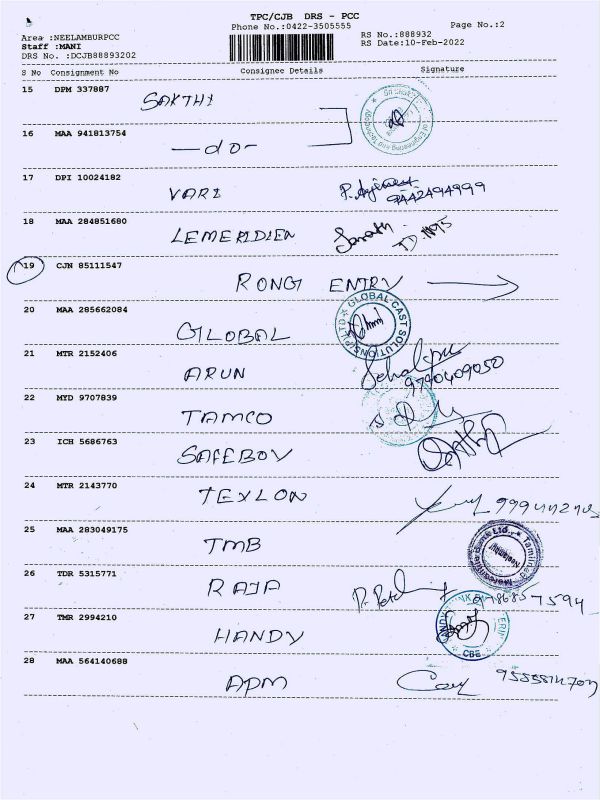 TPC/CJB DRS - PCC
Phone No.:0422-3505555
Page No.:2
Area :NEELAMBURPCC
Staff :MANI
DRS No. :DCJB88893202
RS No.:888932
RS Date:10-Feb-2022
S No Consignment No Consignee Details Signature
15 DPM 337887
SAKTHI
16 MAA 941813754
-do-
17 DPI 10024182
VARI 9442494999
18 MAA 284851680
LEMERIDIEN Sarath
19 CJN 85111547
RONG ENTRY
20 MAA 285662084
GLOBAL GLOBAL CAST SOLUTIONS (P) LTD
21 MTR 2152406
ARUN 9790409050
22 MYD 9707839
TAMCO
23 ICH 5686763
SAFEBOY
24 MTR 2143770
TEXLON
25 MAA 283049175
TMB Tamilnad Mercantile Bank Ltd.,
26 TDR 5315771
RAJA
27 TMR 2994210
HANDY CBE
28 MAA 564140688
APM